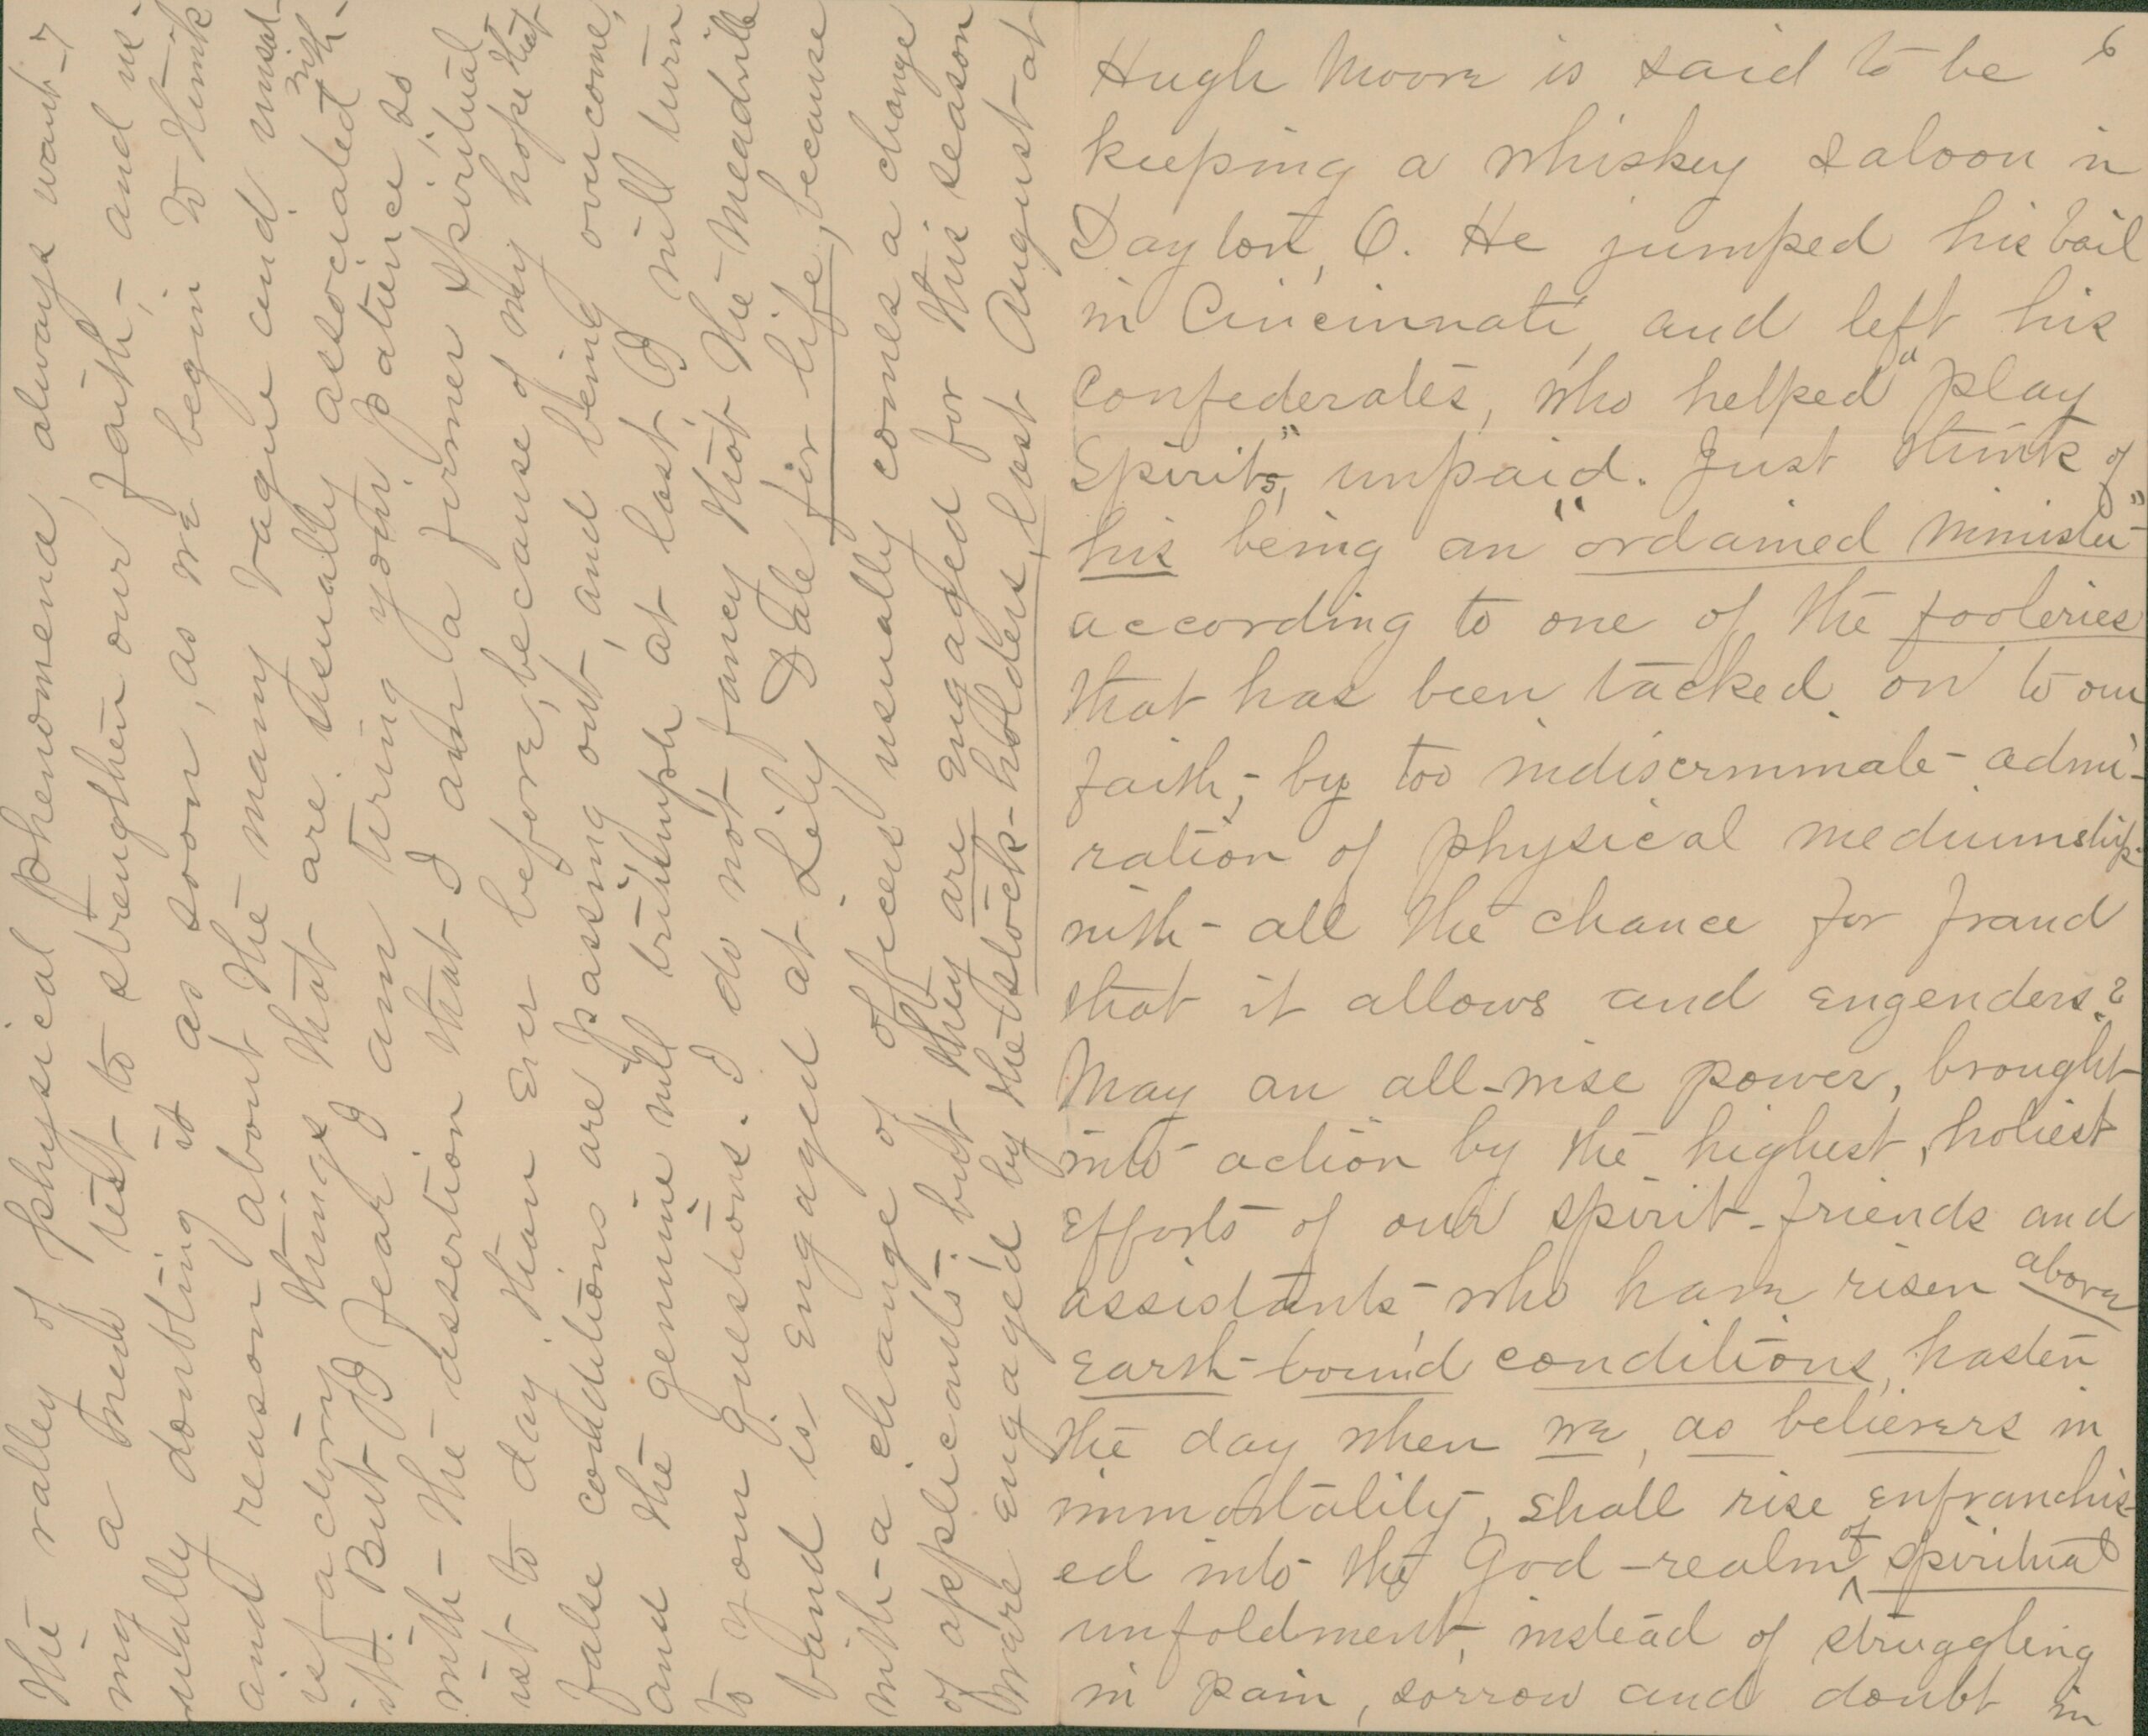 6
Hugh Moore is said to be
keeping a whiskey saloon in
Dayton, O. He jumped his bail
in Cincinnati, and left his
confederates, who helped "play
Spirits," unpaid. Just think of
his being an "ordained minister"
according to one of the fooleries
that has been tacked on to our
faith, - by too indiscriminate admi-
ration of physical mediumship
with all the chance for fraud
that it allows and engenders?
May an all-wise power, brought
into action by the highest, holiest
efforts of our spirit-friends and
assistants who have risen above
earth-bound conditions, hasten
the day when we, as believers in
immortality, shall rise enfranchis-
ed into the God-realm of spiritual
unfoldment, instead of struggling
in pain, sorrow and doubt in
7
the valley of physical phenomena, always want-
ing a new test to strengthen our faith, - and us-
ually doubting it as soon, as we begin to think
and reason about the many vague and unsat-
isfactory things that are usually associated with
it. But I fear I am tiring your patience; so
with the assertion that I am a firmer Spiritual-
ist to day, than ever before, because of my hope that
false conditions are passing out, and being overcome,
and the genuine will triumph at last, I will turn
to your questions. I do not fancy that the Meadville
band is engaged at Lily Dale for life, because
with a change of officers usually comes a change
of applicants: but they are engaged for this season
were engaged by the stock-holders, last August at